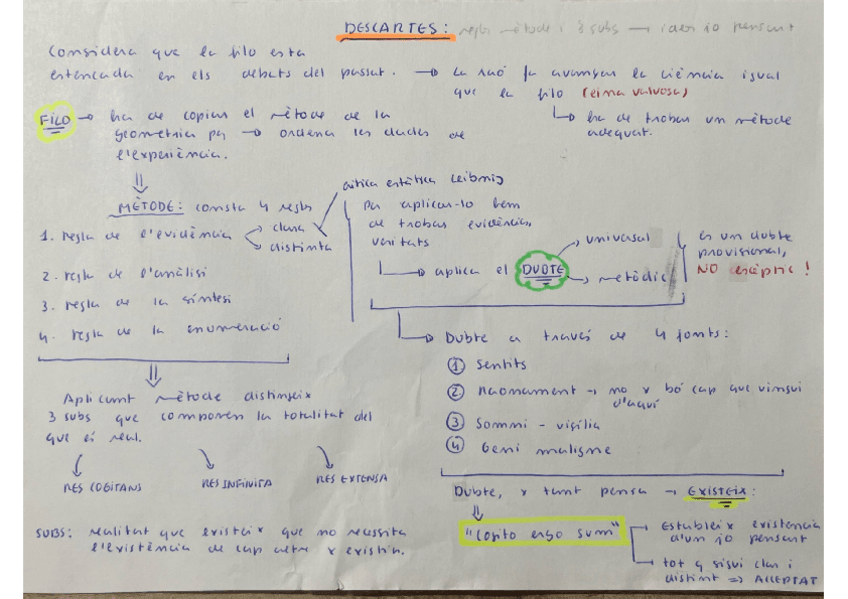 DESCARTES: regls mètode i 3 subs → idees jo pensant
Considera que la filo esta
estancada en els debats del passat. → La raó fa avançar la ciència igual
que la filo (eina valuosa)
↳ ha de trobar un mètode
adequat.
FILO → ha de copiar el mètode de la
geometria per → ordenar les dades de
l'experiència.
⇓
MÈTODE: consta 4 regls
1. regla de l'evidència → clara
→ distinta
crítica estètica Leibniz
2. regla de l'anàlisi
3. regla de la síntesi
4. regla de la enumeració
per aplicar-lo hem
de trobar evidències,
veritats
↳ aplica el DUBTE → universal
→ metòdic
és un dubte
provisional,
NO escèptic!
↳ Dubte a través de 4 fonts:
① Sentits
② Raonament → no x bó cap que vingui
d'aquí
③ Somni - vigília
④ Geni maligne
⇓
Aplicant mètode distingeix
3 subs que componen la totalitat del
que és real.
RES COGITANS RES INFINITA RES EXTENSA
SUBS: realitat que existeix que no necessita
l'existència de cap altre x existir.
Dubte, x tant pensa → EXISTEIX:
⇓
"Cogito ergo sum" → Estableix existencia
d'un jo pensant
→ tot q sigui clar i
distint => ACCEPTAT